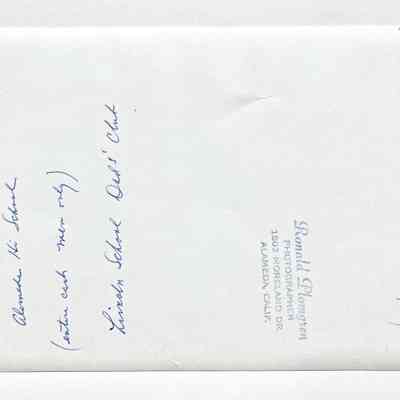 Alameda Hi School
(entire cast men only)
Lincoln School Dads' Club
Ronald Plomgren
PHOTOGRAPHER
1803 MORELAND DR.
ALAMEDA, CALIF.